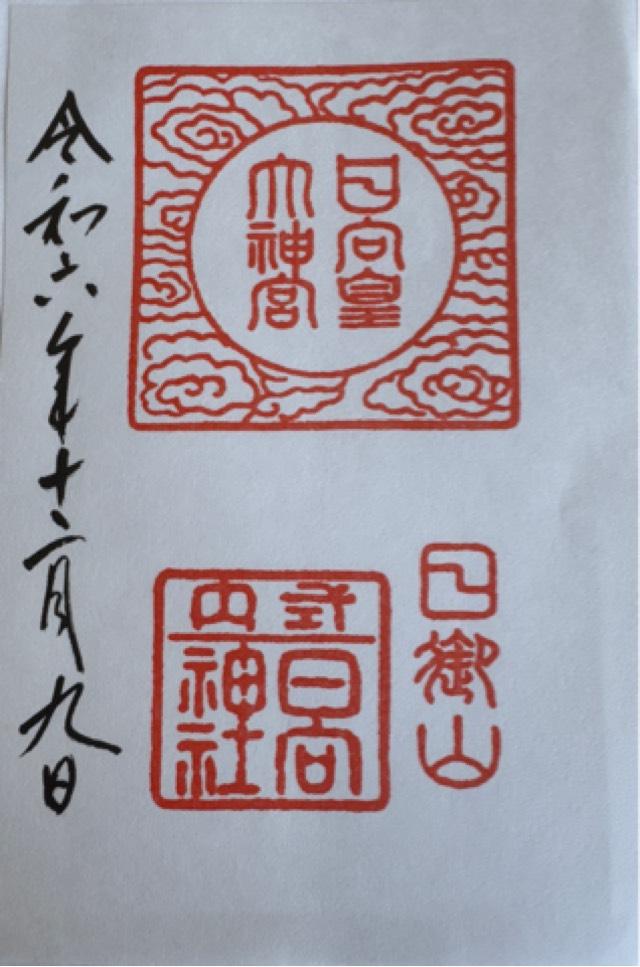 日向皇
大神宮
日御山
式内
日向
神社
令和六年十二月九日